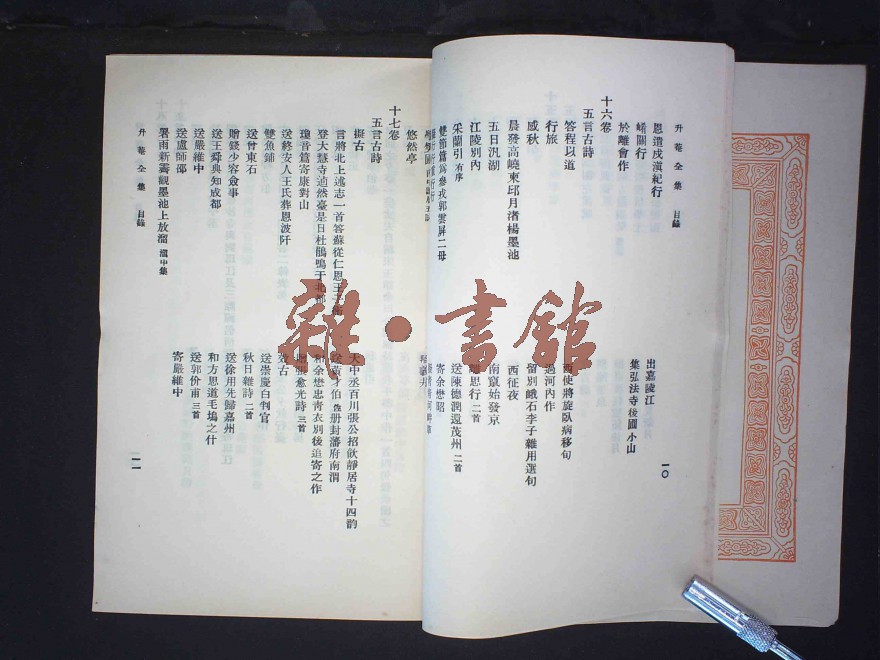 升菴全集 目錄
一〇
恩遣戍滇紀行
嶢關行
於離會作
出嘉陵江
集弘法寺後圃小山
十六卷
五言古詩
答程以道
行旅
感秋
晨發高嶢東邱月渚楊墨池
五日汎湖
江陵別內
采蘭引 有序
雙節篇為參戎郭雲屏二母
西使將旋臥病移旬
過河內作
留別峨石李子雜用選句
西征夜
南竄始發京
思行 二首
送陳德潤還茂州 二首
寄余懋昭
悠然亭
十七卷
五言古詩
擬古
言將北上述志一首答蘇從仁恩王
登大慧寺逌然臺是日杜鵑鳴于北郭
瓊音篇寄康對山
送終安人王氏葬恩波阡
雙魚鋪
送曾東石
贈錢少容僉事
送王舜典知成都
送嚴維中
送盧師邵
暑雨新霽觀墨池上放溜 滇中集
天中丞百川張公招飲靜居寺十四韵
送黃才伯 册封藩府南渭
和余懋忠青衣別後追寄之作
贈張愈光詩 三首
效古
送崇慶白判官
秋日雜詩 二首
送徐用先歸嘉州
和方思道毛塢之什
送郭价甫 三首
寄嚴維中
升菴全集 目錄
一一
雜·書館